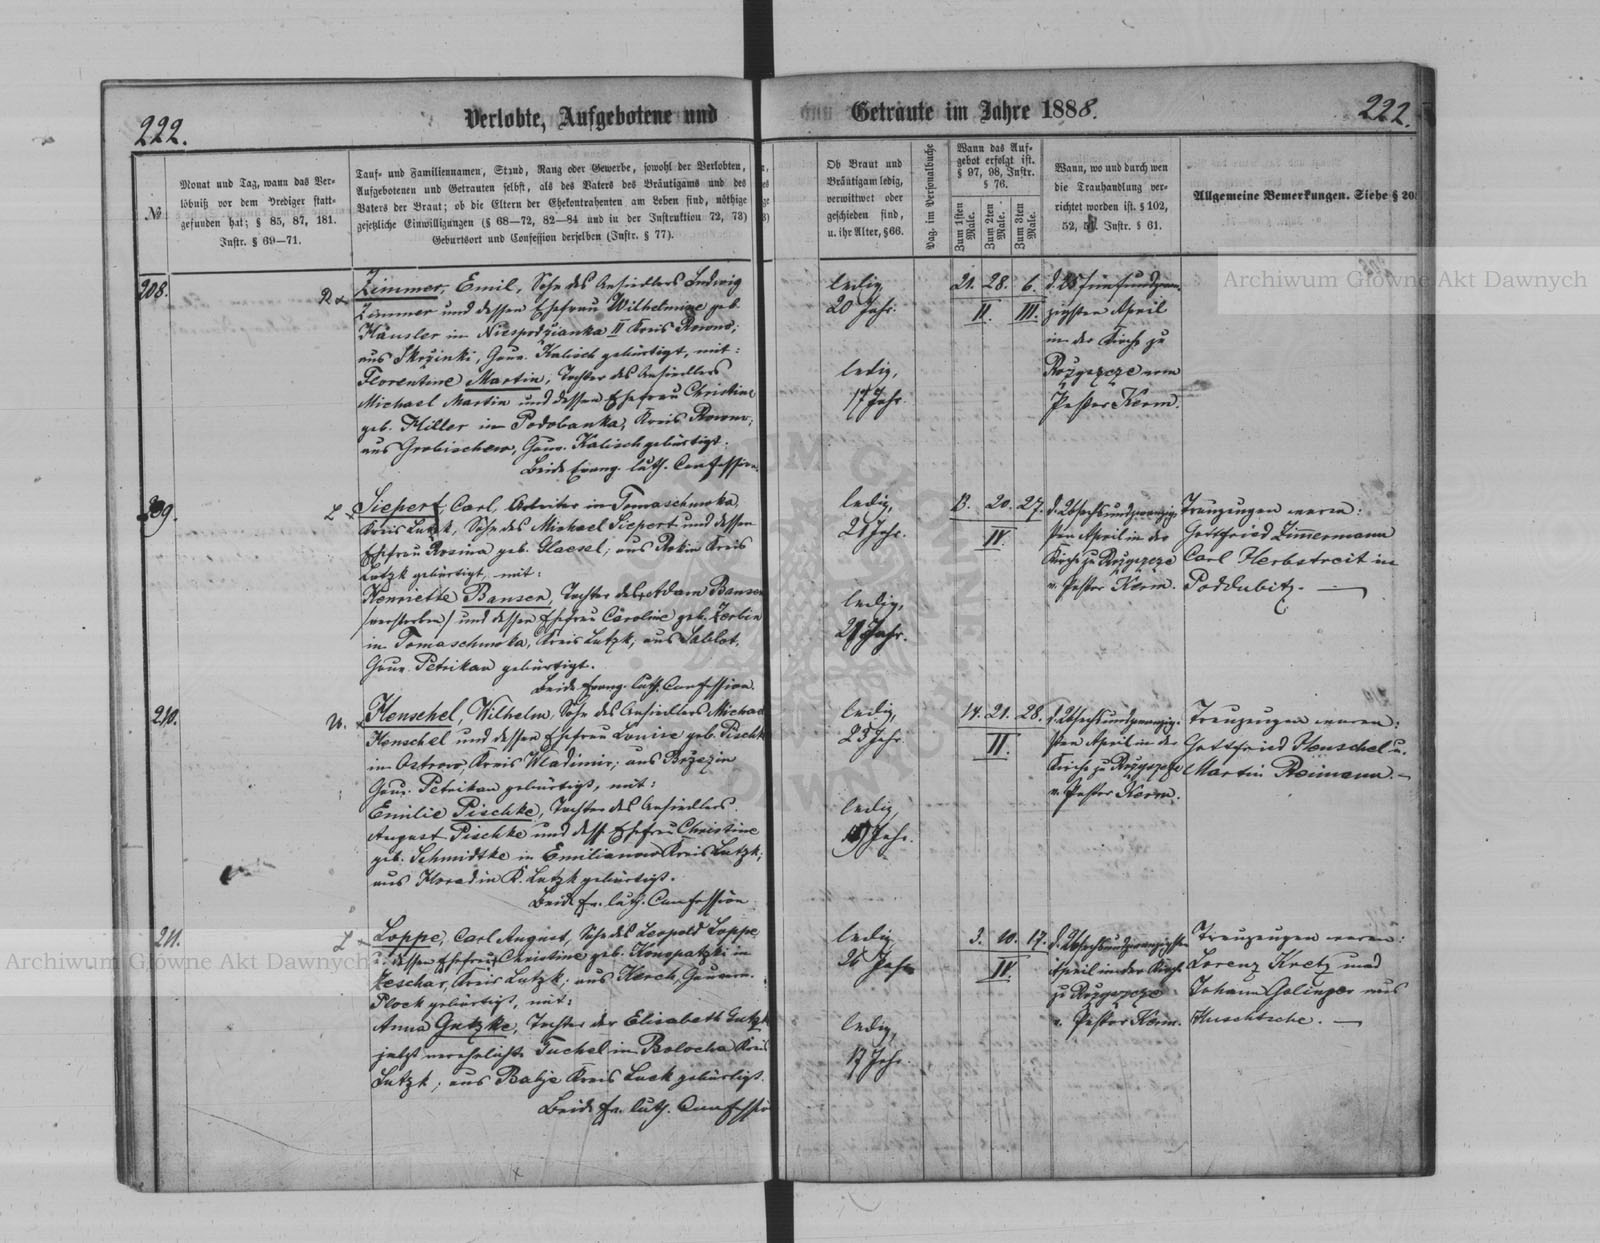 222.
Verlobte, Aufgebotene und
Getraute im Jahre 1888.
222.
№
Monat und Tag, wann das Ver-
löbniß vor dem Prediger statt-
gefunden hat; § 85, 87, 181.
Instr. § 69—71.
Tauf- und Familiennamen, Stand, Rang oder Gewerbe, sowohl der Verlobten,
Aufgebotenen und Getrauten selbst, als des Vaters des Bräutigams und des
Vaters der Braut; ob die Eltern der Ehekontrahenten am Leben sind, nöthige
gesetzliche Einwilligungen (§ 68—72, 82—84 und in der Instruktion 72, 73)
Geburtsort und Confession derselben (Instr. § 77).
Ob Braut und
Bräutigam ledig,
verwittwet oder
geschieden sind,
u. ihr Alter, §66.
Pag. im Personalbuche
Wann das Auf-
gebot erfolgt ist.
§ 97, 98, Instr.
§ 76.
Zum 1sten Male.
Zum 2ten Male.
Zum 3ten Male.
Wann, wo und durch wen
die Trauhandlung ver-
richtet worden ist. § 102,
52, Instr. § 61.
Allgemeine Bemerkungen. Siehe § 20
208.
Zimmer, Emil, Sohn des Ansiedlers Ludwig
Zimmer und dessen Ehefrau Wilhelmine geb.
Häusler in Niespodzianka II Kreis Rowno;
aus Skrzinki, Gouv. Kalisch gebürtigt, mit:
Florentine Martin, Tochter des Ansiedlers
Michael Martin und dessen Ehefrau Christine
geb. Hiller in Podobanka, Kreis Rowno,
aus Grobischew, Gouv. Kalisch gebürtigt.
Beide Evang. luth. Confession.
ledig
20 Jahr.
ledig,
17 Jahr
21. 28. 6.
II. III.
d. 25 fünfundzwan-
zigsten April
in der Kirche zu
Rozyszcze vom
Pastor Kerm.
209.
L
Siepert, Carl, Arbeiter in Tomaschowka
Kreis Lutzk, Sohn des Michael Siepert und dessen
Ehefrau Rosina geb. Glaesel; aus Rokin Kreis
Lutzk gebürtigt, mit:
Henriette Bansen, Tochter des Adam Bansen
/verstorben/ und dessen Ehefrau Caroline geb. Zerbin
in Tomaschowka, Kreis Lutzk, aus
Gouv. Petrikau gebürtigt.
Beide Evang. luth. Confession.
ledig,
Jahr.
ledig,
Jahr.
13. 20. 27.
IV.
d. 26 sechsundzwanzig-
sten April in der
Kirche zu Rozyszcze
v. Pastor Kerm.
Trauzeugen waren:
Gottfried Zimmermann
Carl Herbstreit in
Poddubitz.
210.
Henschel, Wilhelm, Sohn des Ansiedlers Michael
Henschel und dessen Ehefrau Louise geb. Pischke
in Ostrow, Kreis Wladimir; aus Brzezin
Gouv. Petrikau gebürtigt, mit:
Emilie Pischke, Tochter des Ansiedlers
August Pischke und dess. Ehefrau Christine
geb. Schmidtke in Emilianow Kreis Lutzk;
aus Horodin K. Lutzk gebürtigt.
Beide Ev. luth. Confession
ledig,
25 Jahr.
ledig
Jahr.
14. 21. 28.
II.
d. 26 sechsundzwanzig-
sten April in der
Kirche zu Rozyszcze
v. Pastor Kerm.
Trauzeugen waren:
Gottfried Henschel u.
Martin Reimann.
211.
L
Loppe, Carl August, Sohn des Leopold Loppe
u. dessen Ehefrau Christine geb. Konopatzki in
Zeschar, Kreis Lutzk; aus Kerch, Gouvern.
Plock gebürtigt, mit:
Anna Gutzke, Tochter der Elisabeth Gutzke
jetzt verehelichte Tuchel in Bolocha Kreis
Lutzk; aus Babje Kreis Luck gebürtigt.
Beide Ev. luth. Confession
ledig
Jahr
ledig,
17 Jahr.
3. 10. 17.
IV.
d. 26 sechsundzwanzigsten
April in der Kirche
zu Rozyszcze
v. Pastor Kerm.
Trauzeugen waren:
Lorenz Kretz und
Johann Golinger aus
Huschtsche.
Archiwum Główne Akt Dawnych
Archiwum Główne Akt Dawnych